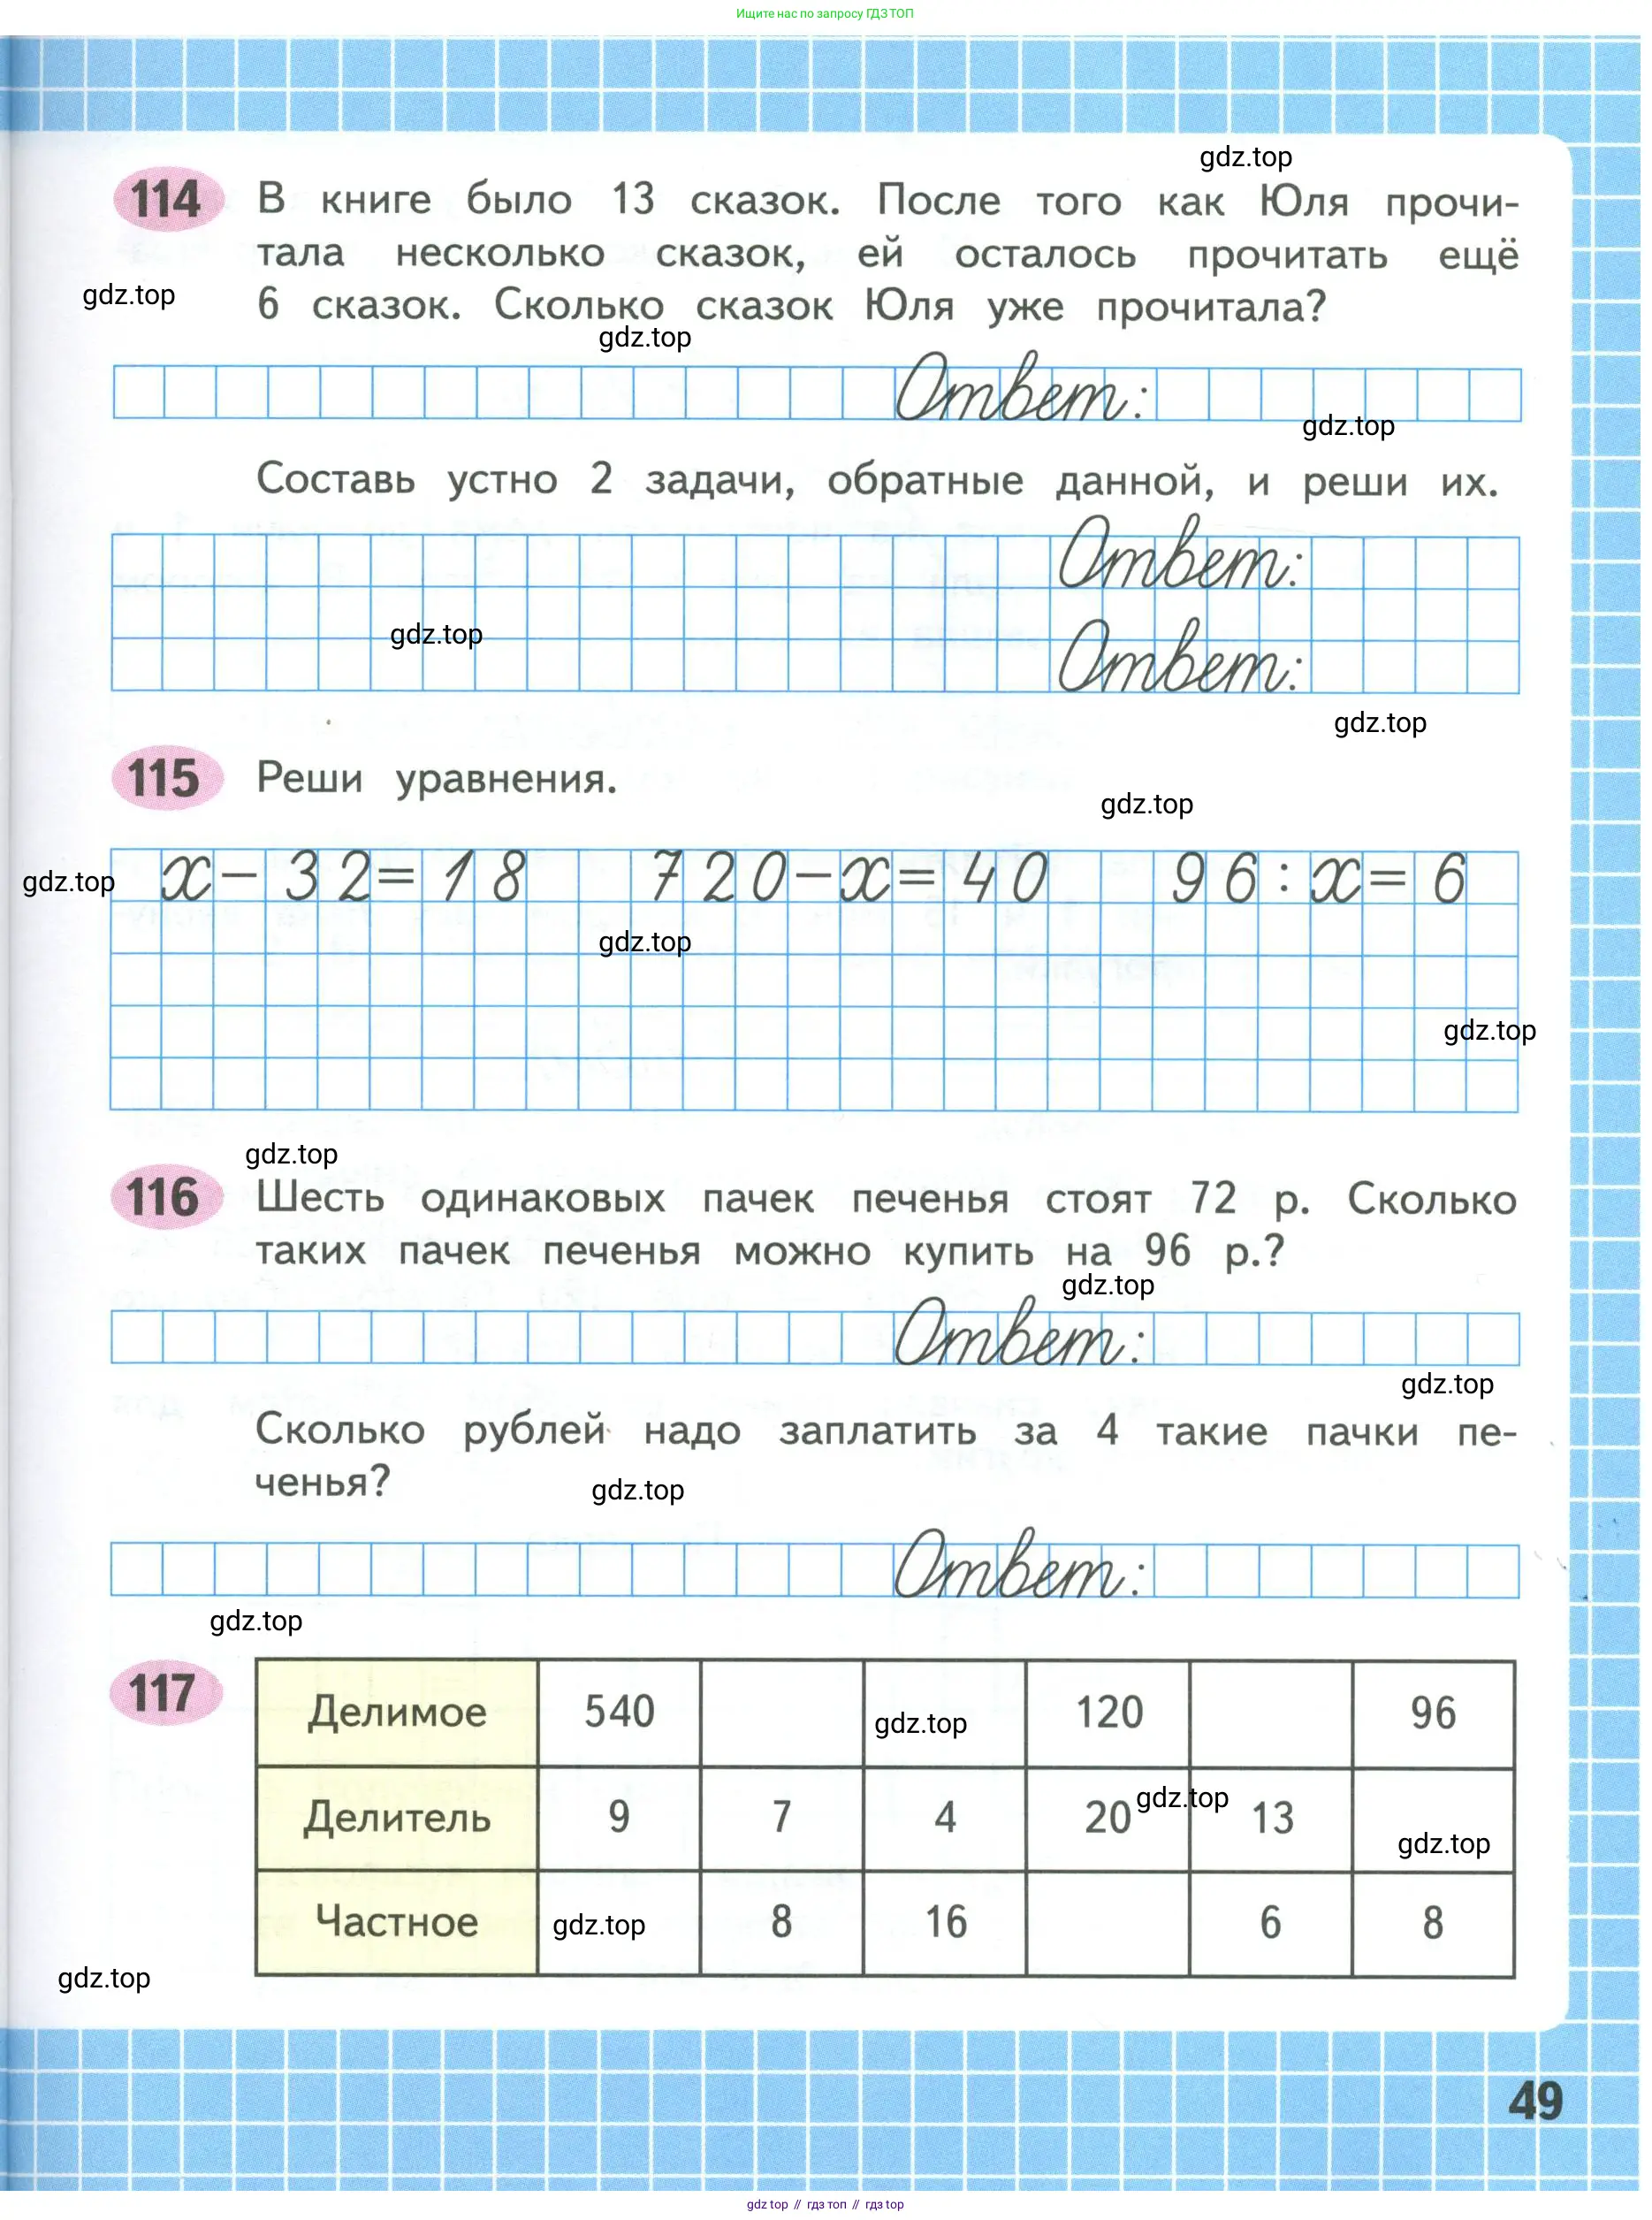 Ищите нас по запросу ГДЗ ТОП
gdz.top
114 В книге было 13 сказок. После того как Юля прочи-
тала несколько сказок, ей осталось прочитать ещё
gdz.top
6 сказок. Сколько сказок Юля уже прочитала?
gdz.top
Ответ:
gdz.top
Составь устно 2 задачи, обратные данной, и реши их.
Ответ:
gdz.top
Ответ:
gdz.top
115 Реши уравнения.
gdz.top
gdz.top
x − 32 = 18 720 − x = 40 96 : x = 6
gdz.top
gdz.top
gdz.top
116 Шесть одинаковых пачек печенья стоят 72 р. Сколько
таких пачек печенья можно купить на 96 р.?
gdz.top
Ответ:
gdz.top
Сколько рублей надо заплатить за 4 такие пачки пе-
ченья?
gdz.top
Ответ:
gdz.top
117
Делимое 540 gdz.top 120 96
gdz.top
Делитель 9 7 4 20 13
gdz.top
Частное gdz.top 8 16 6 8
gdz.top
49
gdz top // гдз топ // gdz top